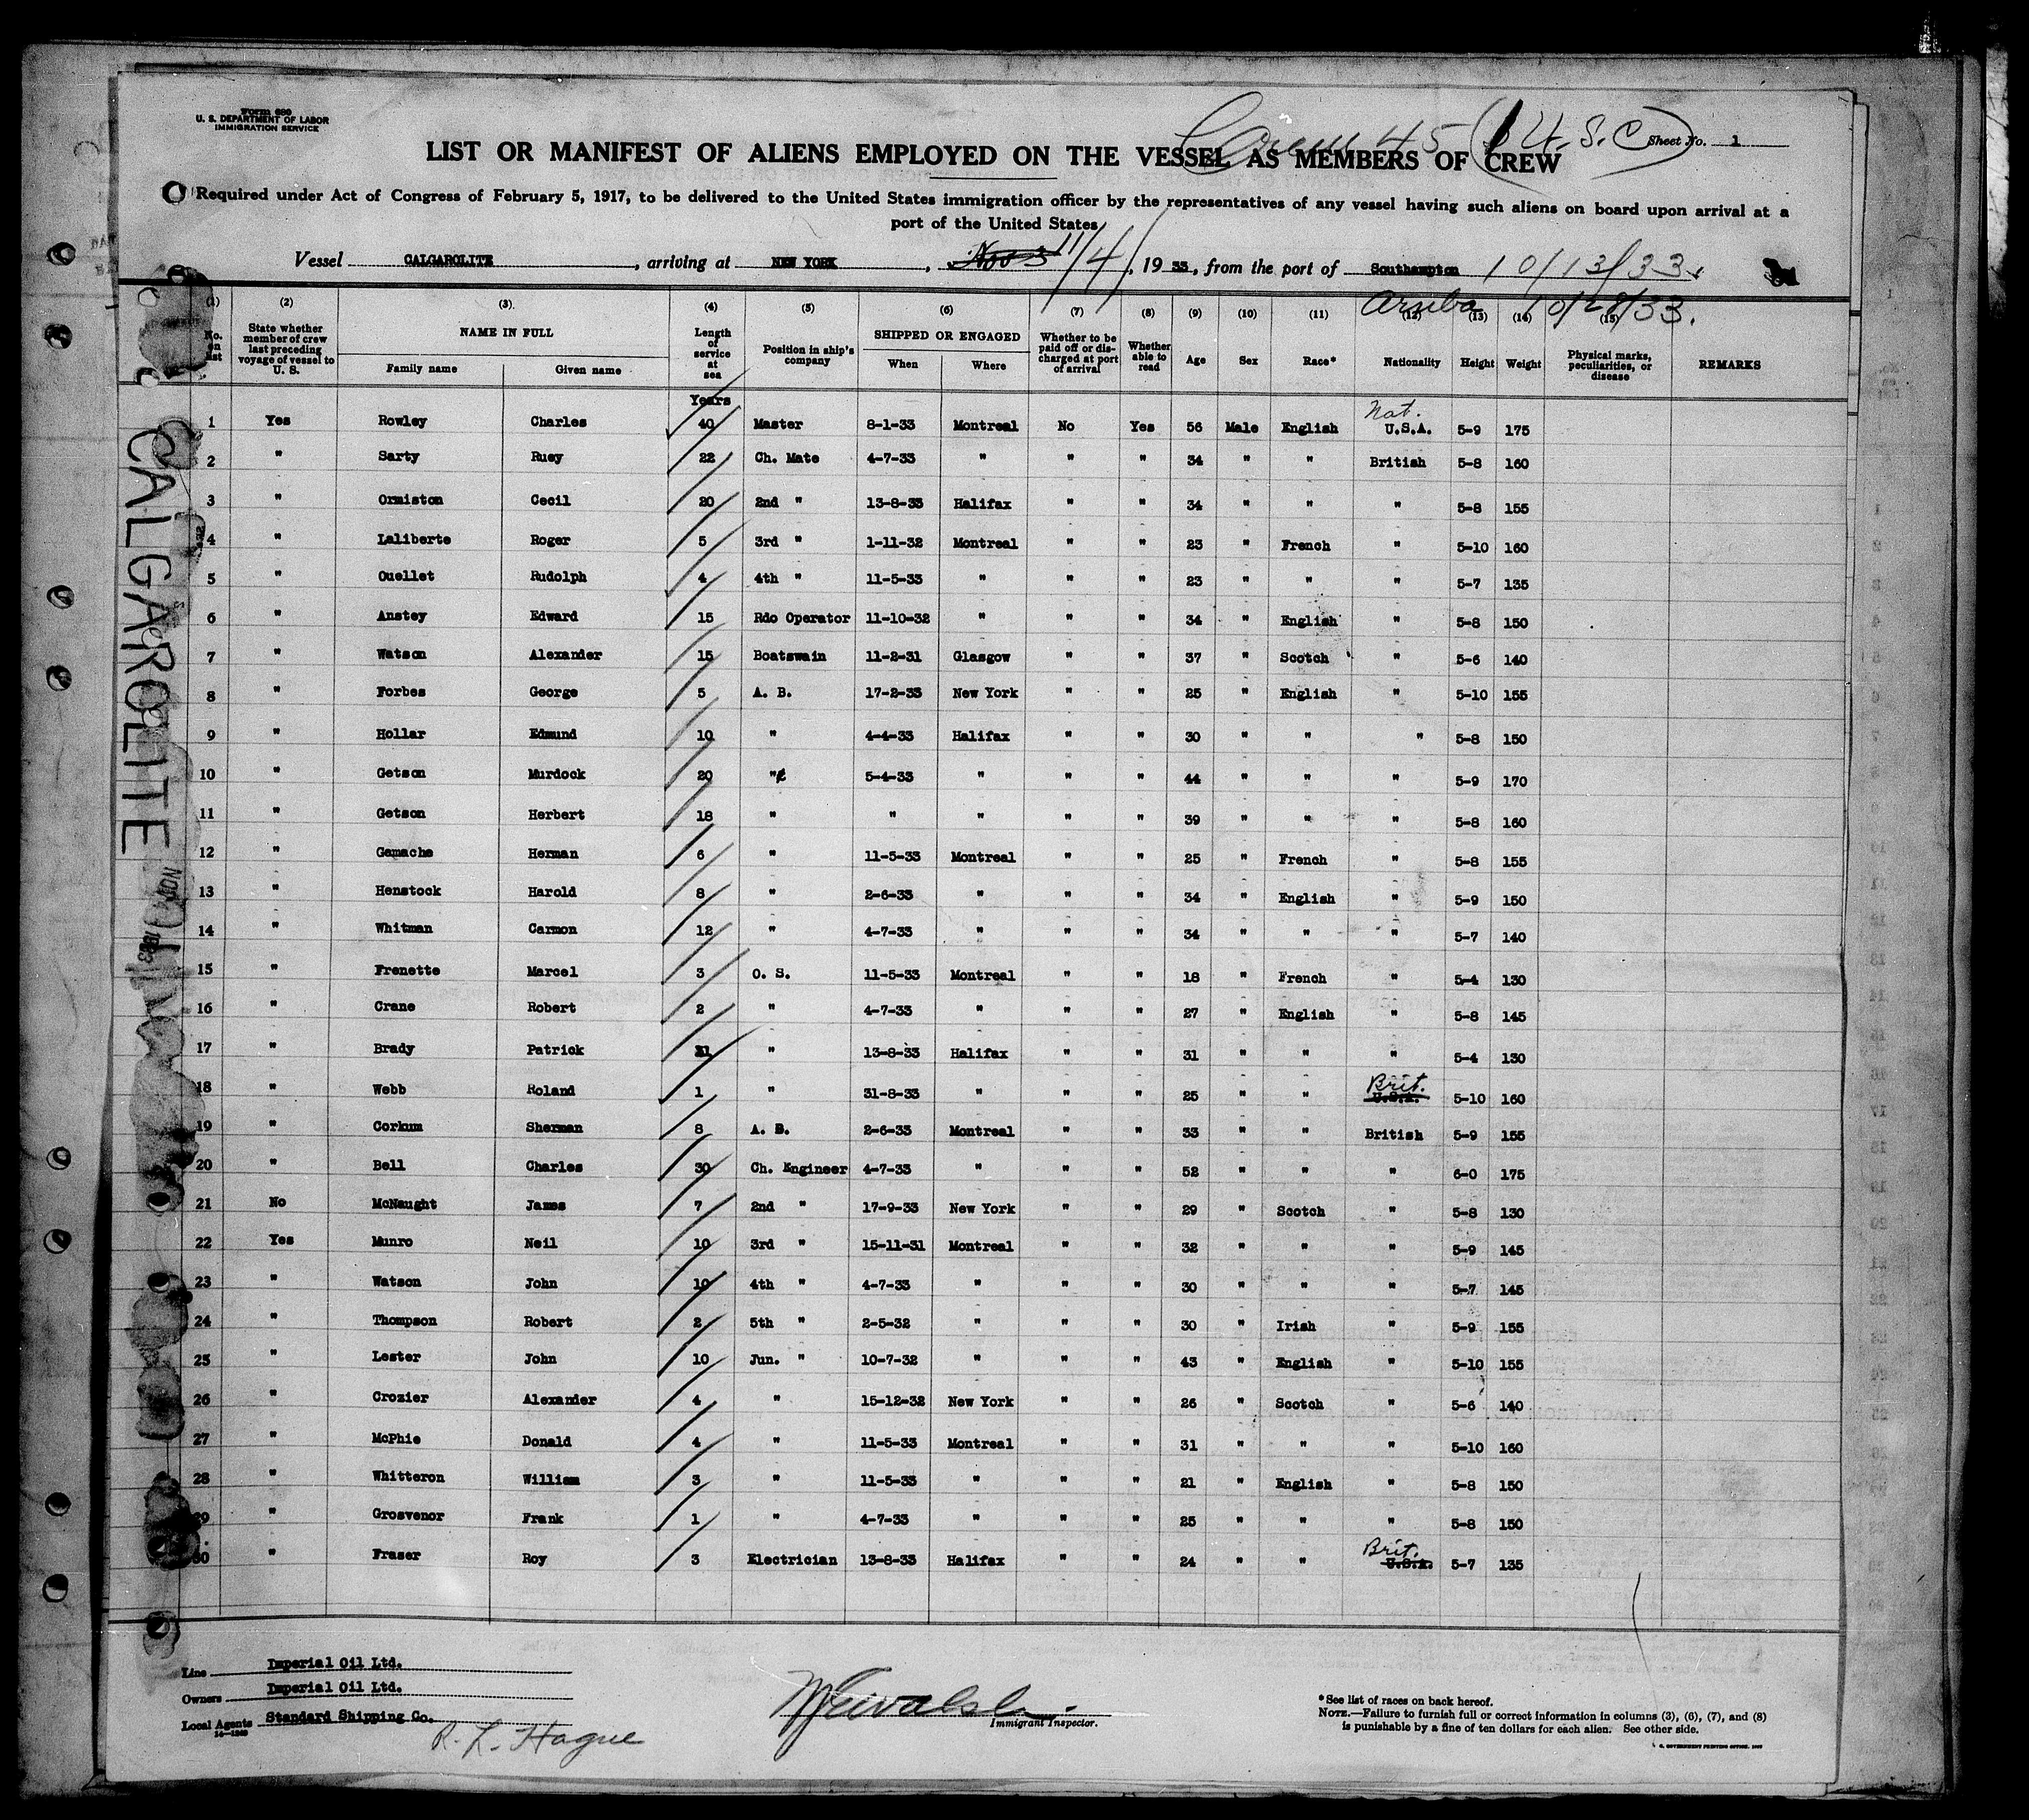 Form 689
U. S. DEPARTMENT OF LABOR
IMMIGRATION SERVICE
45 (1 U.S.C)
Sheet No. 1
LIST OR MANIFEST OF ALIENS EMPLOYED ON THE VESSEL AS MEMBERS OF CREW
Required under Act of Congress of February 5, 1917, to be delivered to the United States immigration officer by the representatives of any vessel having such aliens on board upon arrival at a
port of the United States
Vessel CALGAROLITE, arriving at NEW YORK, Nov 3 11/4/, 1933, from the port of Southampton 10/13/33.
Aruba 10/28/33.
(1) (2) (3) (4) (5) (6) (7) (8) (9) (10) (11) (12) (13) (14) (15)
No. on list State whether member of crew last preceding voyage of vessel to U. S. NAME IN FULL Family name Given name Length of service at sea Position in ship's company SHIPPED OR ENGAGED When Where Whether to be paid off or discharged at port of arrival Whether able to read Age Sex Race* Nationality Height Weight Physical marks, peculiarities, or disease REMARKS
Years
1 Yes Rowley Charles 40 Master 8-1-33 Montreal No Yes 56 Male English Nat. U.S.A. 5-9 175
2 " Sarty Ruey 22 Ch. Mate 4-7-33 " " " 34 " " British 5-8 160
3 " Ormiston Cecil 20 2nd " 13-8-33 Halifax " " 34 " " " 5-8 155
4 " Laliberte Roger 5 3rd " 1-11-32 Montreal " " 23 " French " 5-10 160
5 " Ouellet Rudolph 4 4th " 11-5-33 " " " 23 " " " 5-7 135
6 " Anstey Edward 15 Rdo Operator 11-10-32 " " " 34 " English " 5-8 150
7 " Watson Alexander 15 Boatswain 11-2-31 Glasgow " " 37 " Scotch " 5-6 140
8 " Forbes George 5 A. B. 17-2-33 New York " " 25 " English " 5-10 155
9 " Hollar Edmund 10 " 4-4-33 Halifax " " 30 " " " 5-8 150
10 " Getson Murdock 20 " 5-4-33 " " " 44 " " " 5-9 170
11 " Getson Herbert 18 " " " " " 39 " " " 5-8 160
12 " Gamache Herman 6 " 11-5-33 Montreal " " 25 " French " 5-8 155
13 " Henstock Harold 8 " 2-6-33 " " " 34 " English " 5-9 150
14 " Whitman Carmon 12 " 4-7-33 " " " 34 " " " 5-7 140
15 " Frenette Marcel 3 O. S. 11-5-33 Montreal " " 18 " French " 5-4 130
16 " Crane Robert 2 " 4-7-33 " " " 27 " English " 5-8 145
17 " Brady Patrick " 13-8-33 Halifax " " 31 " " " 5-4 130
18 " Webb Roland 1 " 31-8-33 " " " 25 " " Brit. U.S.A. 5-10 160
19 " Corkum Sherman 8 A. B. 2-6-33 Montreal " " 33 " " British 5-9 155
20 " Bell Charles 30 Ch. Engineer 4-7-33 " " " 52 " " " 6-0 175
21 No McNaught James 7 2nd " 17-9-33 New York " " 29 " Scotch " 5-8 130
22 Yes Munro Neil 10 3rd " 15-11-31 Montreal " " 32 " " " 5-9 145
23 " Watson John 10 4th " 4-7-33 " " " 30 " " " 5-7 145
24 " Thompson Robert 2 5th " 2-5-32 " " " 30 " Irish " 5-9 155
25 " Lester John 10 Jun. " 10-7-32 " " " 43 " English " 5-10 155
26 " Crozier Alexander 4 " 15-12-32 New York " " 26 " Scotch " 5-6 140
27 " McPhie Donald 4 " 11-5-33 Montreal " " 31 " " " 5-10 160
28 " Whitteron William 3 " 11-5-33 " " " 21 " English " 5-8 150
29 " Grosvenor Frank 1 " 4-7-33 " " " 25 " " " 5-8 150
30 " Fraser Roy 3 Electrician 13-8-33 Halifax " " 24 " " Brit. U.S.A. 5-7 135
CALGAROLITE
NOV 4 1933
Line Imperial Oil Ltd.
Owners Imperial Oil Ltd.
Local Agents Standard Shipping Co.
14-1249
R. L. Hague
Immigrant Inspector.
*See list of races on back hereof.
NOTE.—Failure to furnish full or correct information in columns (3), (6), (7), and (8)
is punishable by a fine of ten dollars for each alien. See other side.